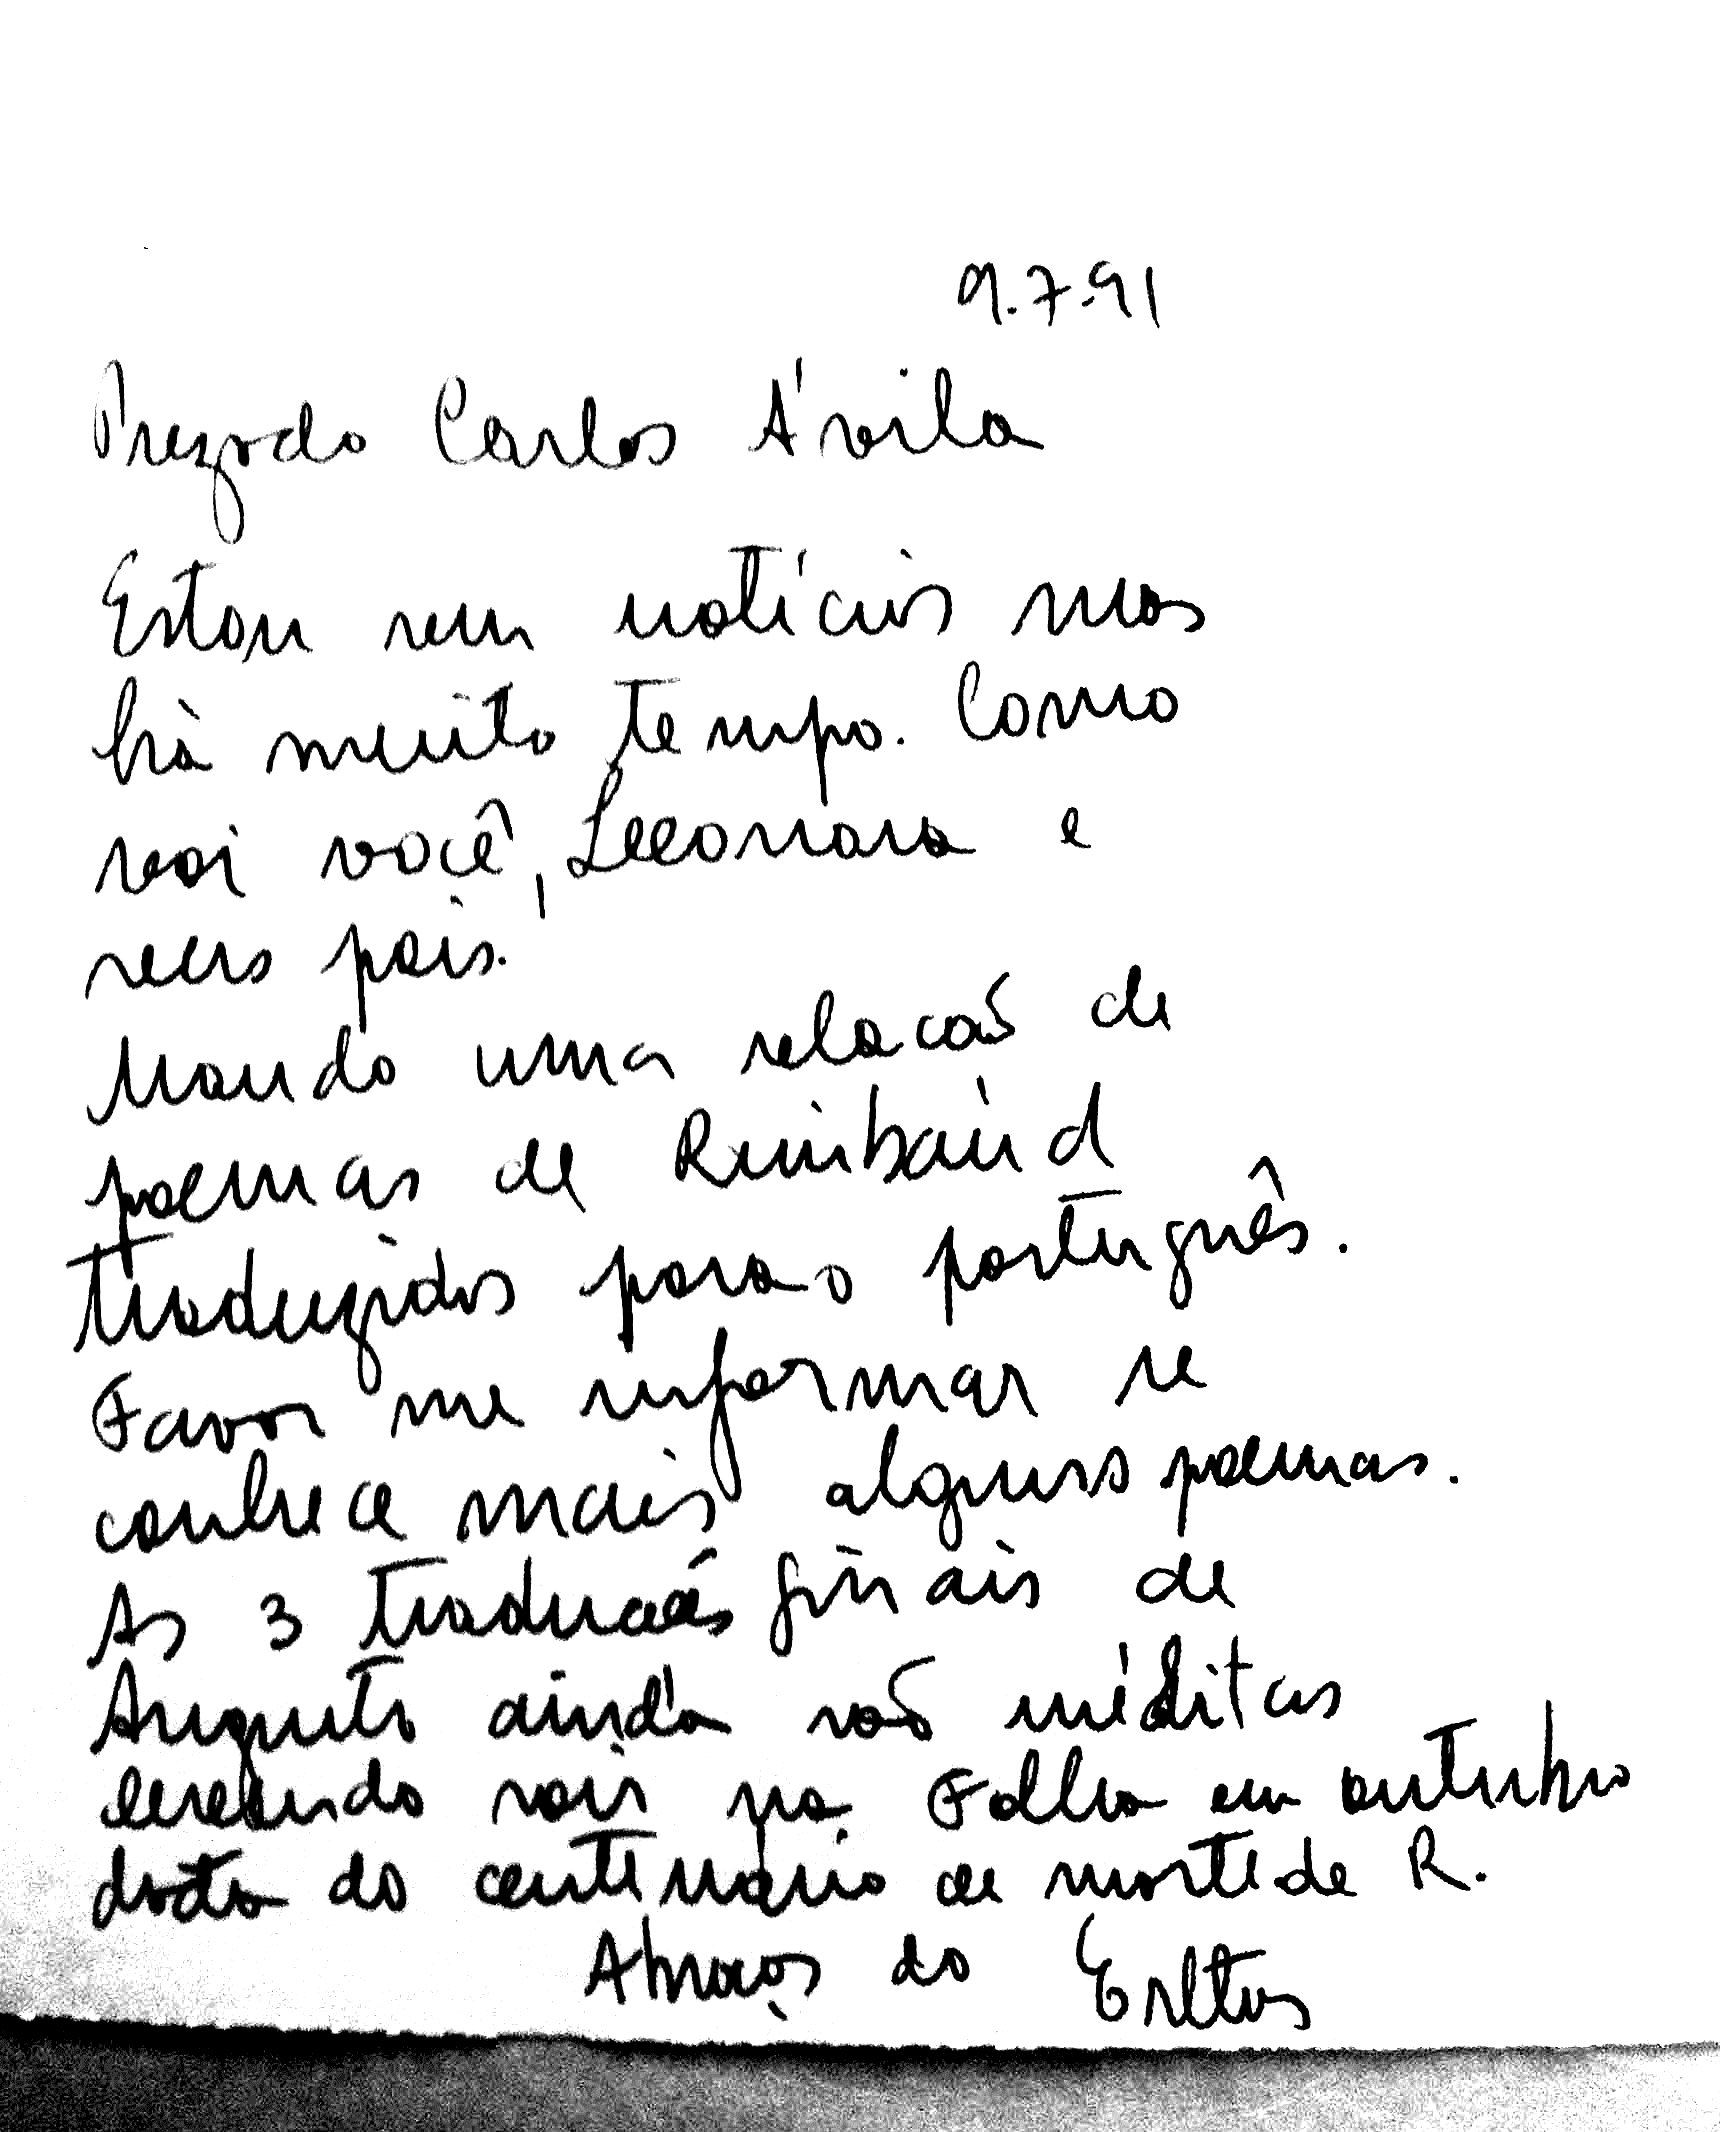 9.7.91
Prezado Carlos Ávila
Estou sem notícias mas
há muito tempo. Como
vai você, Leeonara e
seus pais.
Mando uma relacaõ de
poemas de Rimbaud
traduzidos para o português.
Favor me informar se
conhece mais alguns poemas.
As 3 traducoẽs finais de
Augusto ainda saõ inéditas
devendo sair na Folha em outubro
data do centenário de morte de R.
Abraços do Erthos